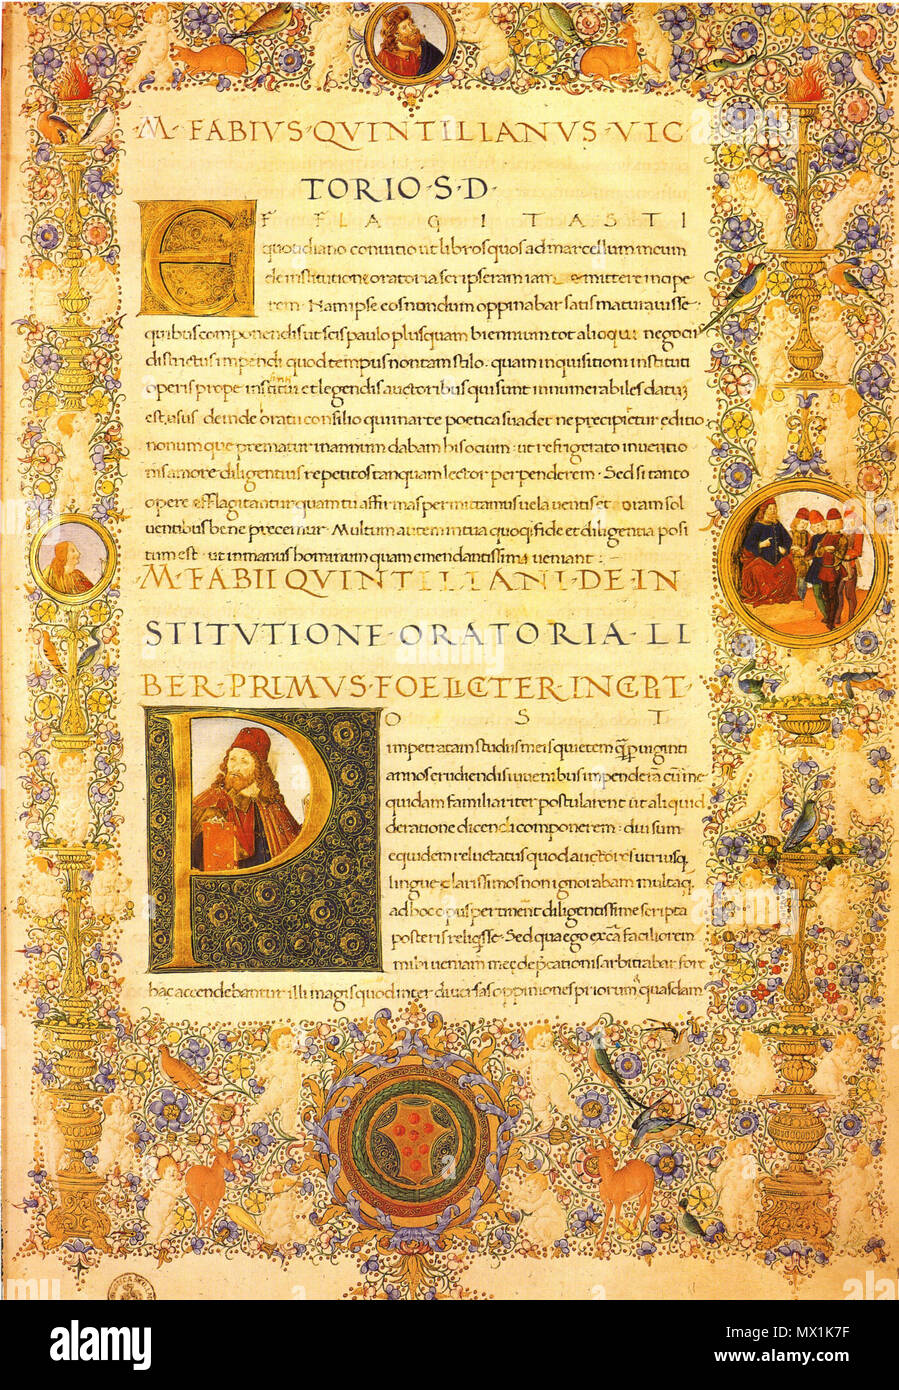 M · FABIVS · QVINTILIANVS · VIC
TORIO · S · D ·
EFFLAGITASTI
quotidiano conuitio ut libros quos ad marcellum meum
de institutione oratoria scripseram iam emittere incipe
rem · Nam ipse eos nundum oppinabar satis maturauisse
quibus componendis ut scis paulo plusquam biennium tot alioqui negociis
districtus impendi quod tempus non tam stilo · quam inquisitioni instituti
operis prope et legendis auctoribus qui sunt innumerabiles datum
est · usus deinde oratii consilio qui in arte poetica suadet ne precipitetur editio
nonum que prematur in annum dabam his ocium : ut refrigerato inuentio
nis amore diligentius repetitos tanquam lector perpenderem · Sed si tanto
opere efflagitantur quam tu affirmas permittamus uela uentis et oram sol
uentibus bene precemur · Multum autem in tua quoque fide et diligentia posi
tum est · ut in manus hominum quam emendatissimi ueniant :
M · FABII QVINTILIANI · DE · IN
STITVTIONE · ORATORIA · LI
BER · PRIMVS · FOELICITER · INCEPIT ·
POST
impetratam studiis meis quietem q̅ p uiginti
annos erudiendis iuuenibus impenderã cũ me
quidam familiariter postularent ut aliquid
de ratione dicendi componerem : diu sum
equidem reluctatus quod auctores utriusq
lingue clarissimos non ignorabam multa q
ad hoc opus pertinent diligentissime scripta
posteris reliqsse · Sed qua ego excã faciliorem
mihi ueniam meę dep̃cationis arbitrabar fore
hac accendebantur illi magis quod inter diuersas oppiniones priorum quasdam
alamy
Image ID: MX1K7F
www.alamy.com